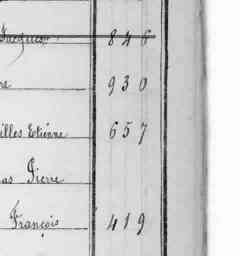 Jacques 846
re 930
illes Etienne 657
as Pierre
François 419